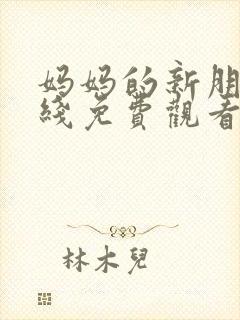 妈妈的新朋
綫免費觀看
林木兒